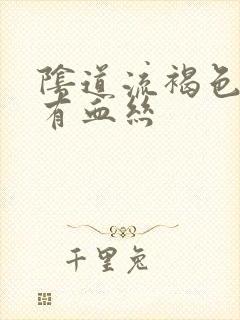 陰道流褐色
有血絲
千里兔